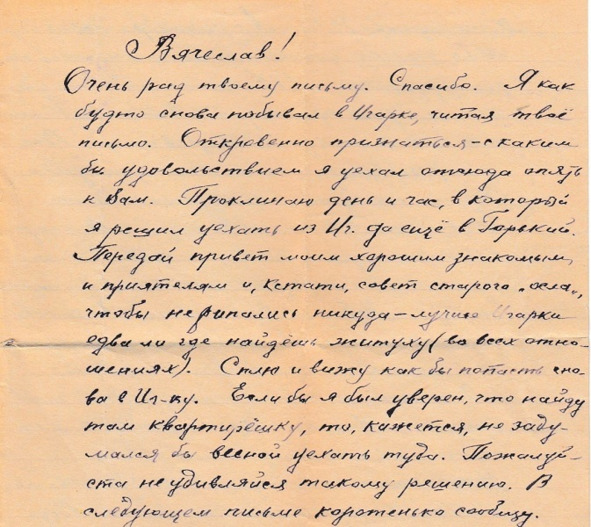 Вячеслав!
Очень рад твоему письму. Спасибо. Я как
будто снова побывал в Игарке, читая твоё
письмо. Откровенно признаться – с каким
бы удовольствием я уехал отсюда опять
к Вам. Проклинаю день и час, в который
я решил уехать из Иг. да ещё в Горький.
Передай привет моим хорошим знакомым,
и приятелям и, кстати, совет старого „осла",
чтобы не рипались никуда – лучше Игарки
едва ли где найдёшь житуху (во всех отно-
шениях). Сплю и вижу как бы попасть сно-
ва в Иг-ку. Если бы я был уверен, что найду
там квартирёшку, то, кажется, не заду-
мался бы весной уехать туда. Пожалуй-
ста не удивляйся такому решению. В
следующем письме коротенько сообщу.